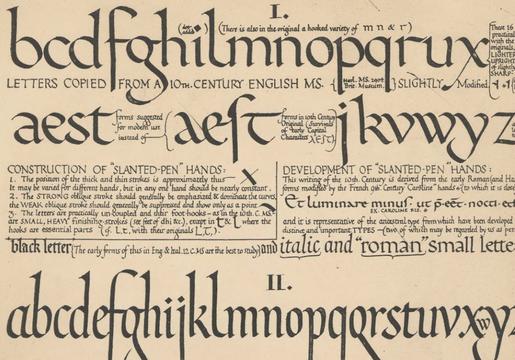 I.
(There is also in the original a hooked variety of m n & r)
bcdfghilmnopqrux
LETTERS COPIED FROM A 10th. CENTURY ENGLISH MS. {Harl. MS. 2904 Brit. Museum.} SLIGHTLY Modified
aest forms suggested for modern use instead of (aest forms in 10th Century Original (Survivals of early Capital Characters AEST)) jkvwyz
CONSTRUCTION OF "SLANTED-PEN" HANDS:
1. The position of the thick and thin strokes is approximately thus
It may be varied for different hands, but in any one hand should be nearly constant.
2. The STRONG oblique stroke should generally be emphasized & dominate the curves,
the WEAK oblique stroke should generally be suppressed and show only as a point
3. The letters are practically un-coupled and their foot-hooks—as in the 10th. C. MS.
are SMALL, HEAVY finishing-strokes (see feet of ihl &c.), except in t & L where the
hooks are essential parts (cf. I, t, with their originals L, T,).
DEVELOPMENT OF "SLANTED-PEN" HANDS:
This writing of the 10th. Century is derived from the early Roman (and Ha
forms modified by the French 9th. Century "Caroline" hands—(to which it is close
Et luminare minus. ut p̄eēt. nocti. et
EX. CAROLINE BIB. 9
and it is representative of the ancestral type from which have been developed
distinct and important TYPES—(two of which may be regarded as its per
black letter (The early forms of this in Eng. & Ital. 12. C. MSS are the best to study) and italic and "roman" small lette
II.
abcdefghijklmnopqrstuvxwyz